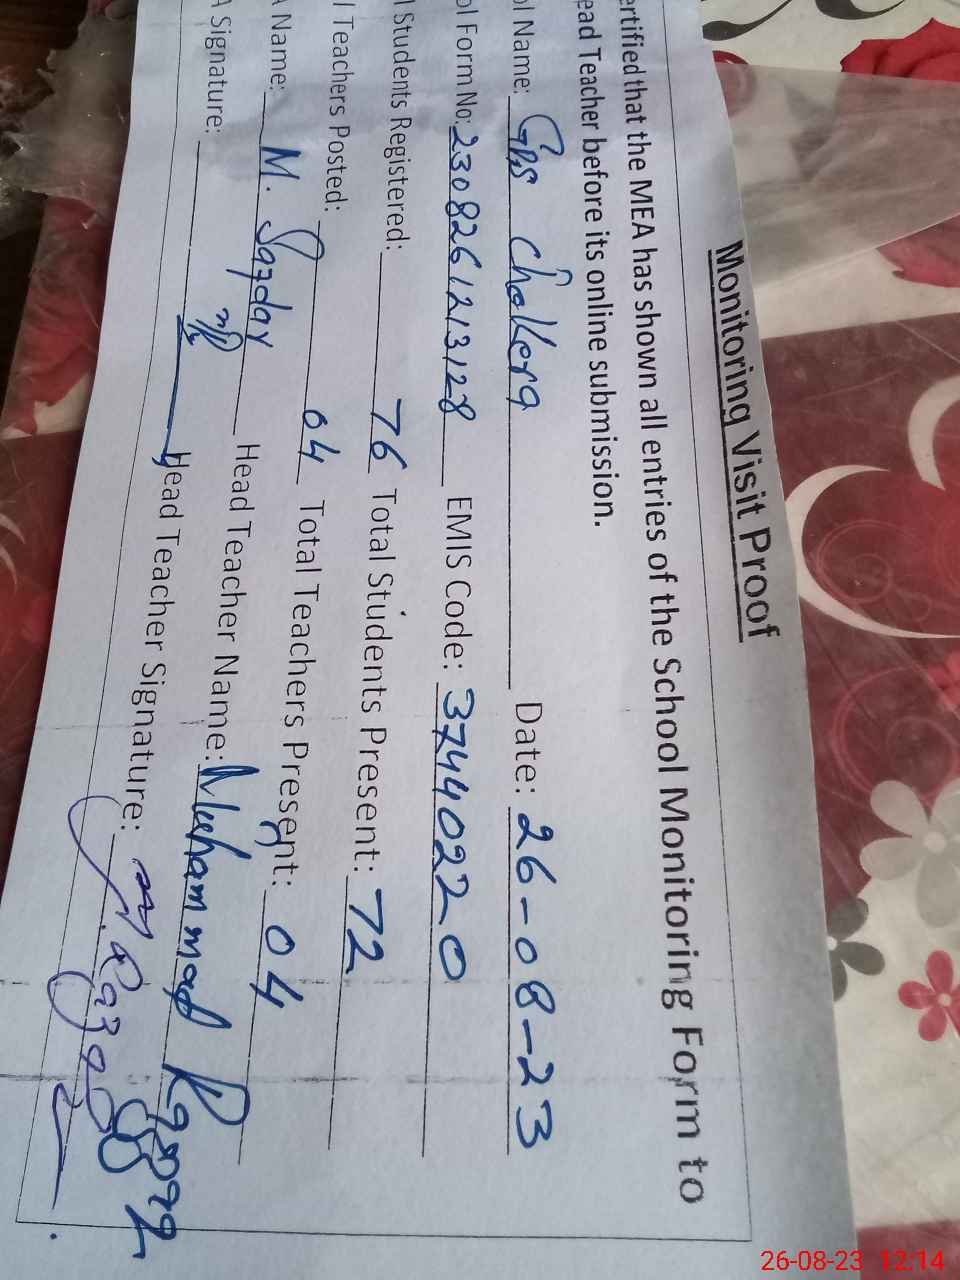 Monitoring Visit Proof
ertified that the MEA has shown all entries of the School Monitoring Form to
ead Teacher before its online submission.
ol Name: GPS chakera Date: 26-08-23
ol Form No: 2308261213128 EMIS Code: 37440220
l Students Registered: 76 Total Students Present: 72
l Teachers Posted: 04 Total Teachers Present: 04
A Name: M. Safdar Head Teacher Name: Muhammad
A Signature: Head Teacher Signature:
26-08-23 12:14